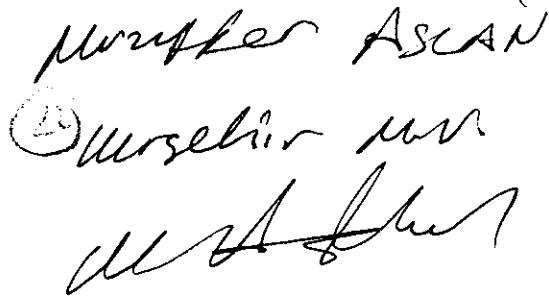 Muzaffer ASLAN
Kırşehir Mv.